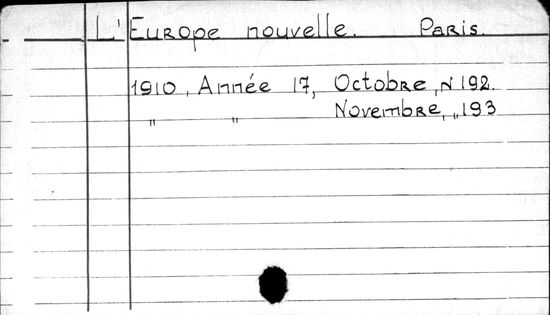 L'Europe nouvelle. Paris.
1910, Année 17, Octobre, N 192.
" " Novembre, „ 193